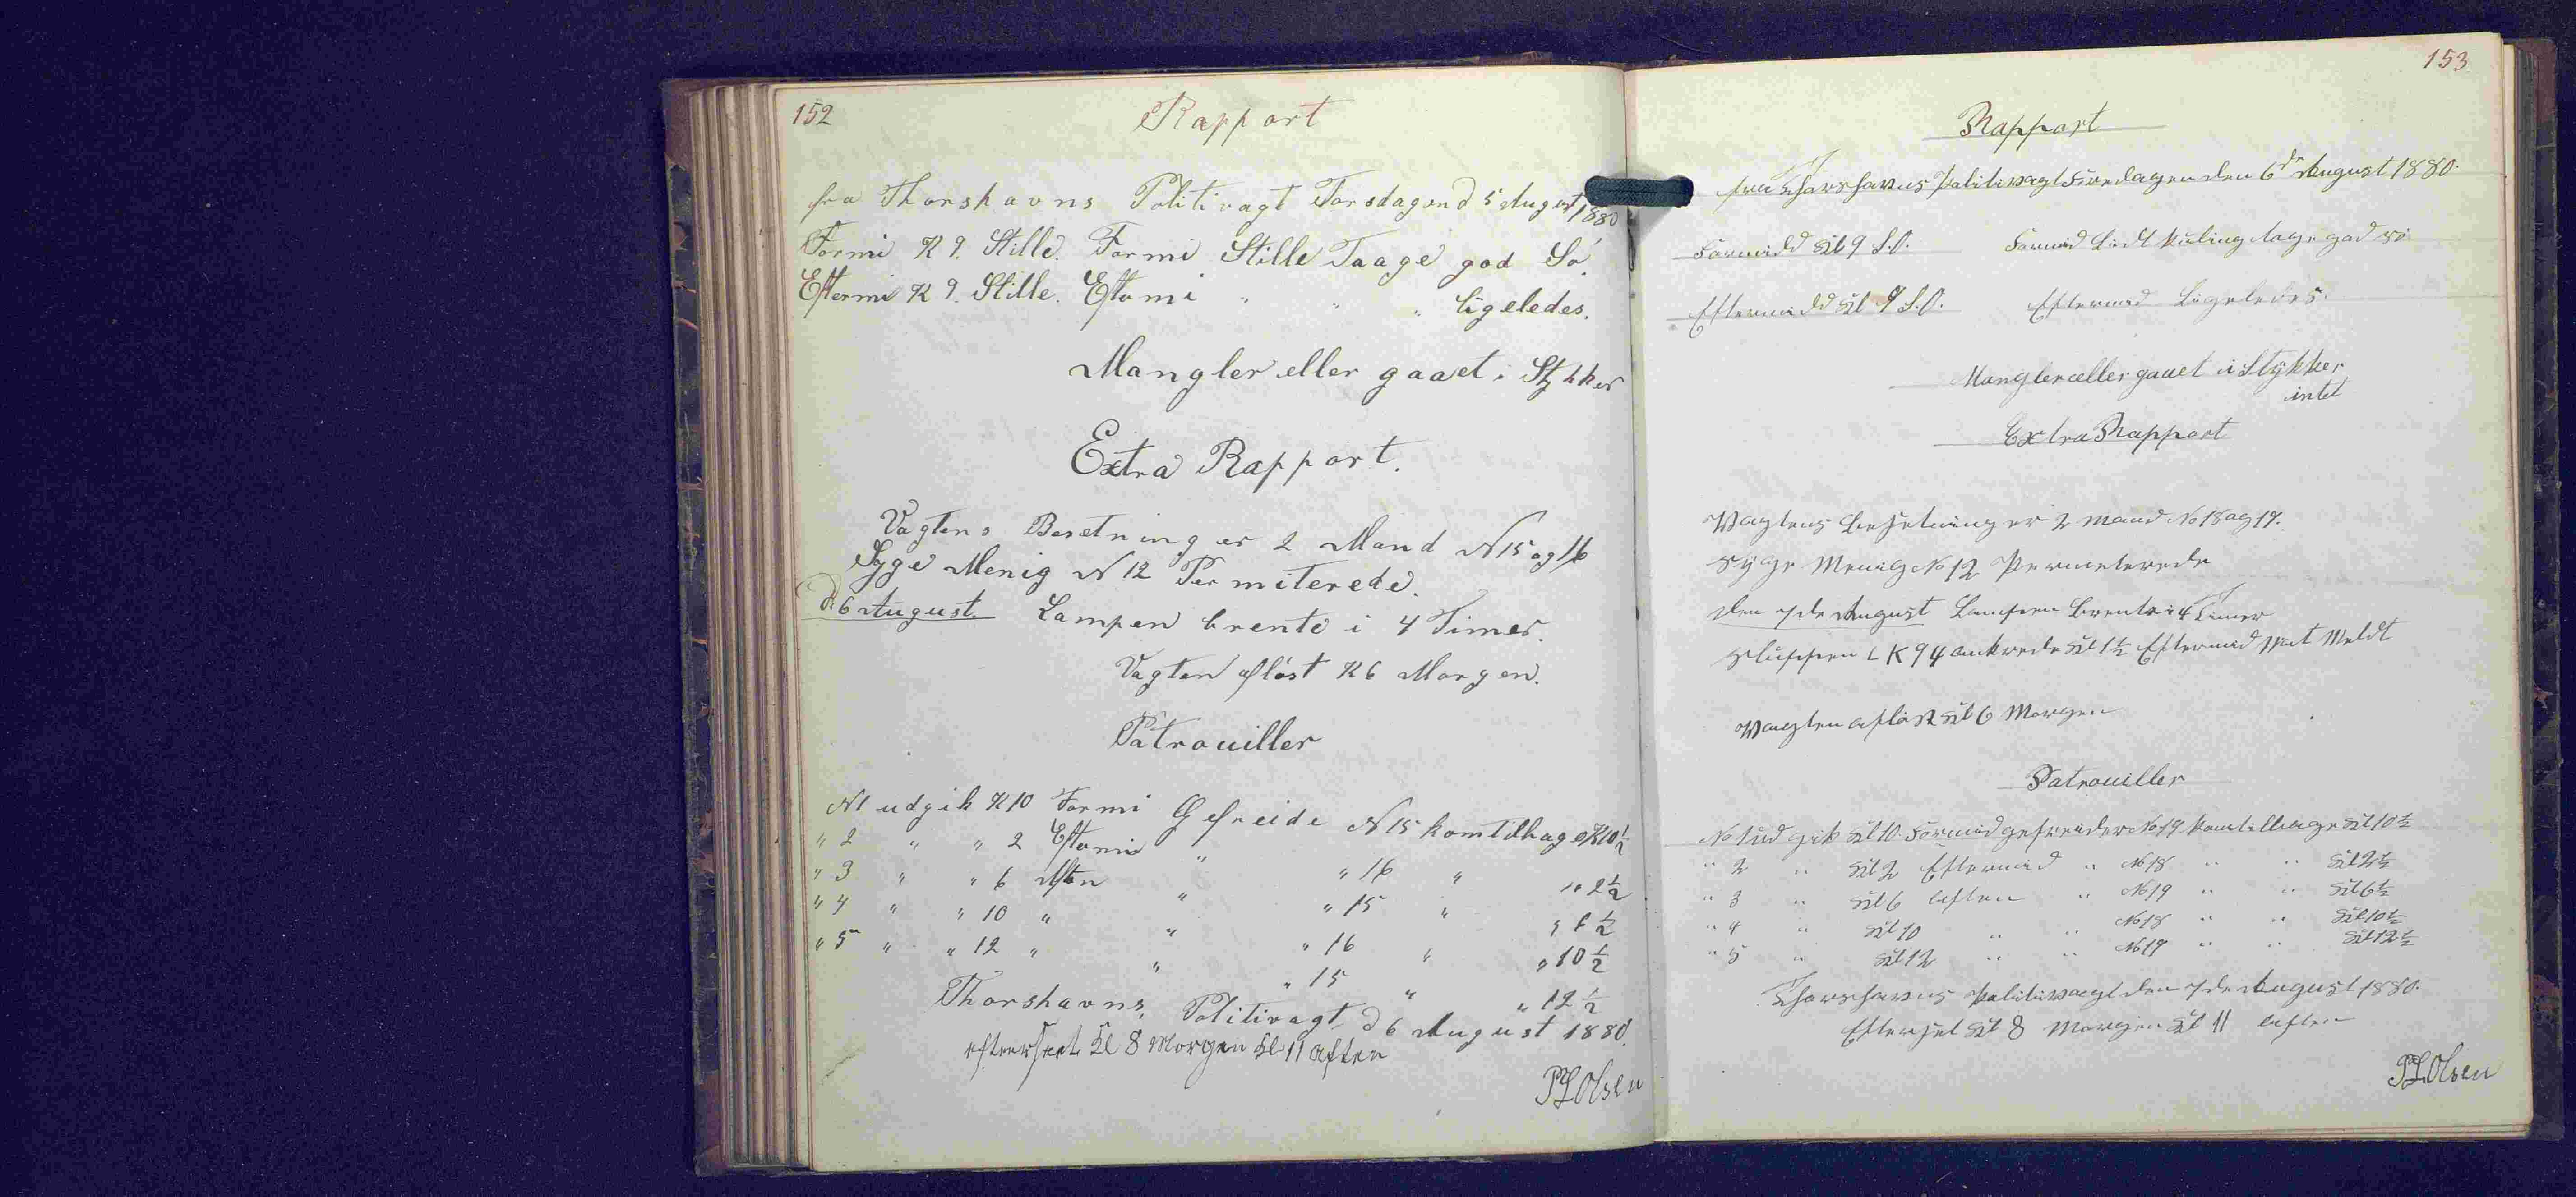 152
Rapport
fra Thorshavns Politivagt Torsdagend 5 August 1880
Formi K 9. Stille. Formi Stille Taage god Sö.
Eftermi K 9. Stille. Eftomi " " " ligeledes.
Mangler eller gaaet i Stykker
Extra Rapport.
Vagtens Besetning er 2 Mand N 15 og 16
Syge Menig N 12 Permiterede.
D. 6 August. Lampen brente i 4 Timer.
Vagten aflöst K 6 Morgen.
Patrouiller
N1 udgik K 10 Formi Gefreide N 15 kom tilbage K 10 1/2
" 2 " " 2 Eftomi " " 16 " " 2 1/2
" 3 " " 6 Aften " " 15 " " 6 1/2
" 4 " " 10 " " " 16 " " 10 1/2
" 5 " " 12 " " " 15 " " 12 1/2
Thorshavns, Politivagt, d 6 August 1880.
efterseet Kl 8 Morgen Kl 11 aften
PLOlsen
153
Rapport
fra Thorshavns Politivagt Fredagen den 6de August 1880.
Formidd Kl 9 S.O. Formid Lidt Kuling tage god sö
Eftermidd Kl 9 S.O. Eftermid Ligeledes.
Mangler eller gaaet i Stykker
intet
Extra Rapport
Vagtens besetning er 2 Mand No 18 og 19.
Syge Menig No 12 Permeterede
den 7de August Lampen brente i 4 Timer
Sluppen LK 94 ankrede Kl 1 1/2 Eftermid Meldt
Vagten aflöst Kl 6 Morgen
Patrouiller
No 1 udgik Kl 10. Formid gefreider No 19 kom tilbage Kl 10 1/2
" 2 " Kl 2 Eftermid " No 18 " " Kl 2 1/2
" 3 " Kl 6 aften " No 19 " " Kl 6 1/2
" 4 " Kl 10 " " No 18 " " Kl 10 1/2
" 5 " Kl 12 " " No 19 " " Kl 12 1/2
Thorshavns Politivagt den 7de August 1880.
Efterset Kl 8 Morgen Kl 11 aften
PLOlsen